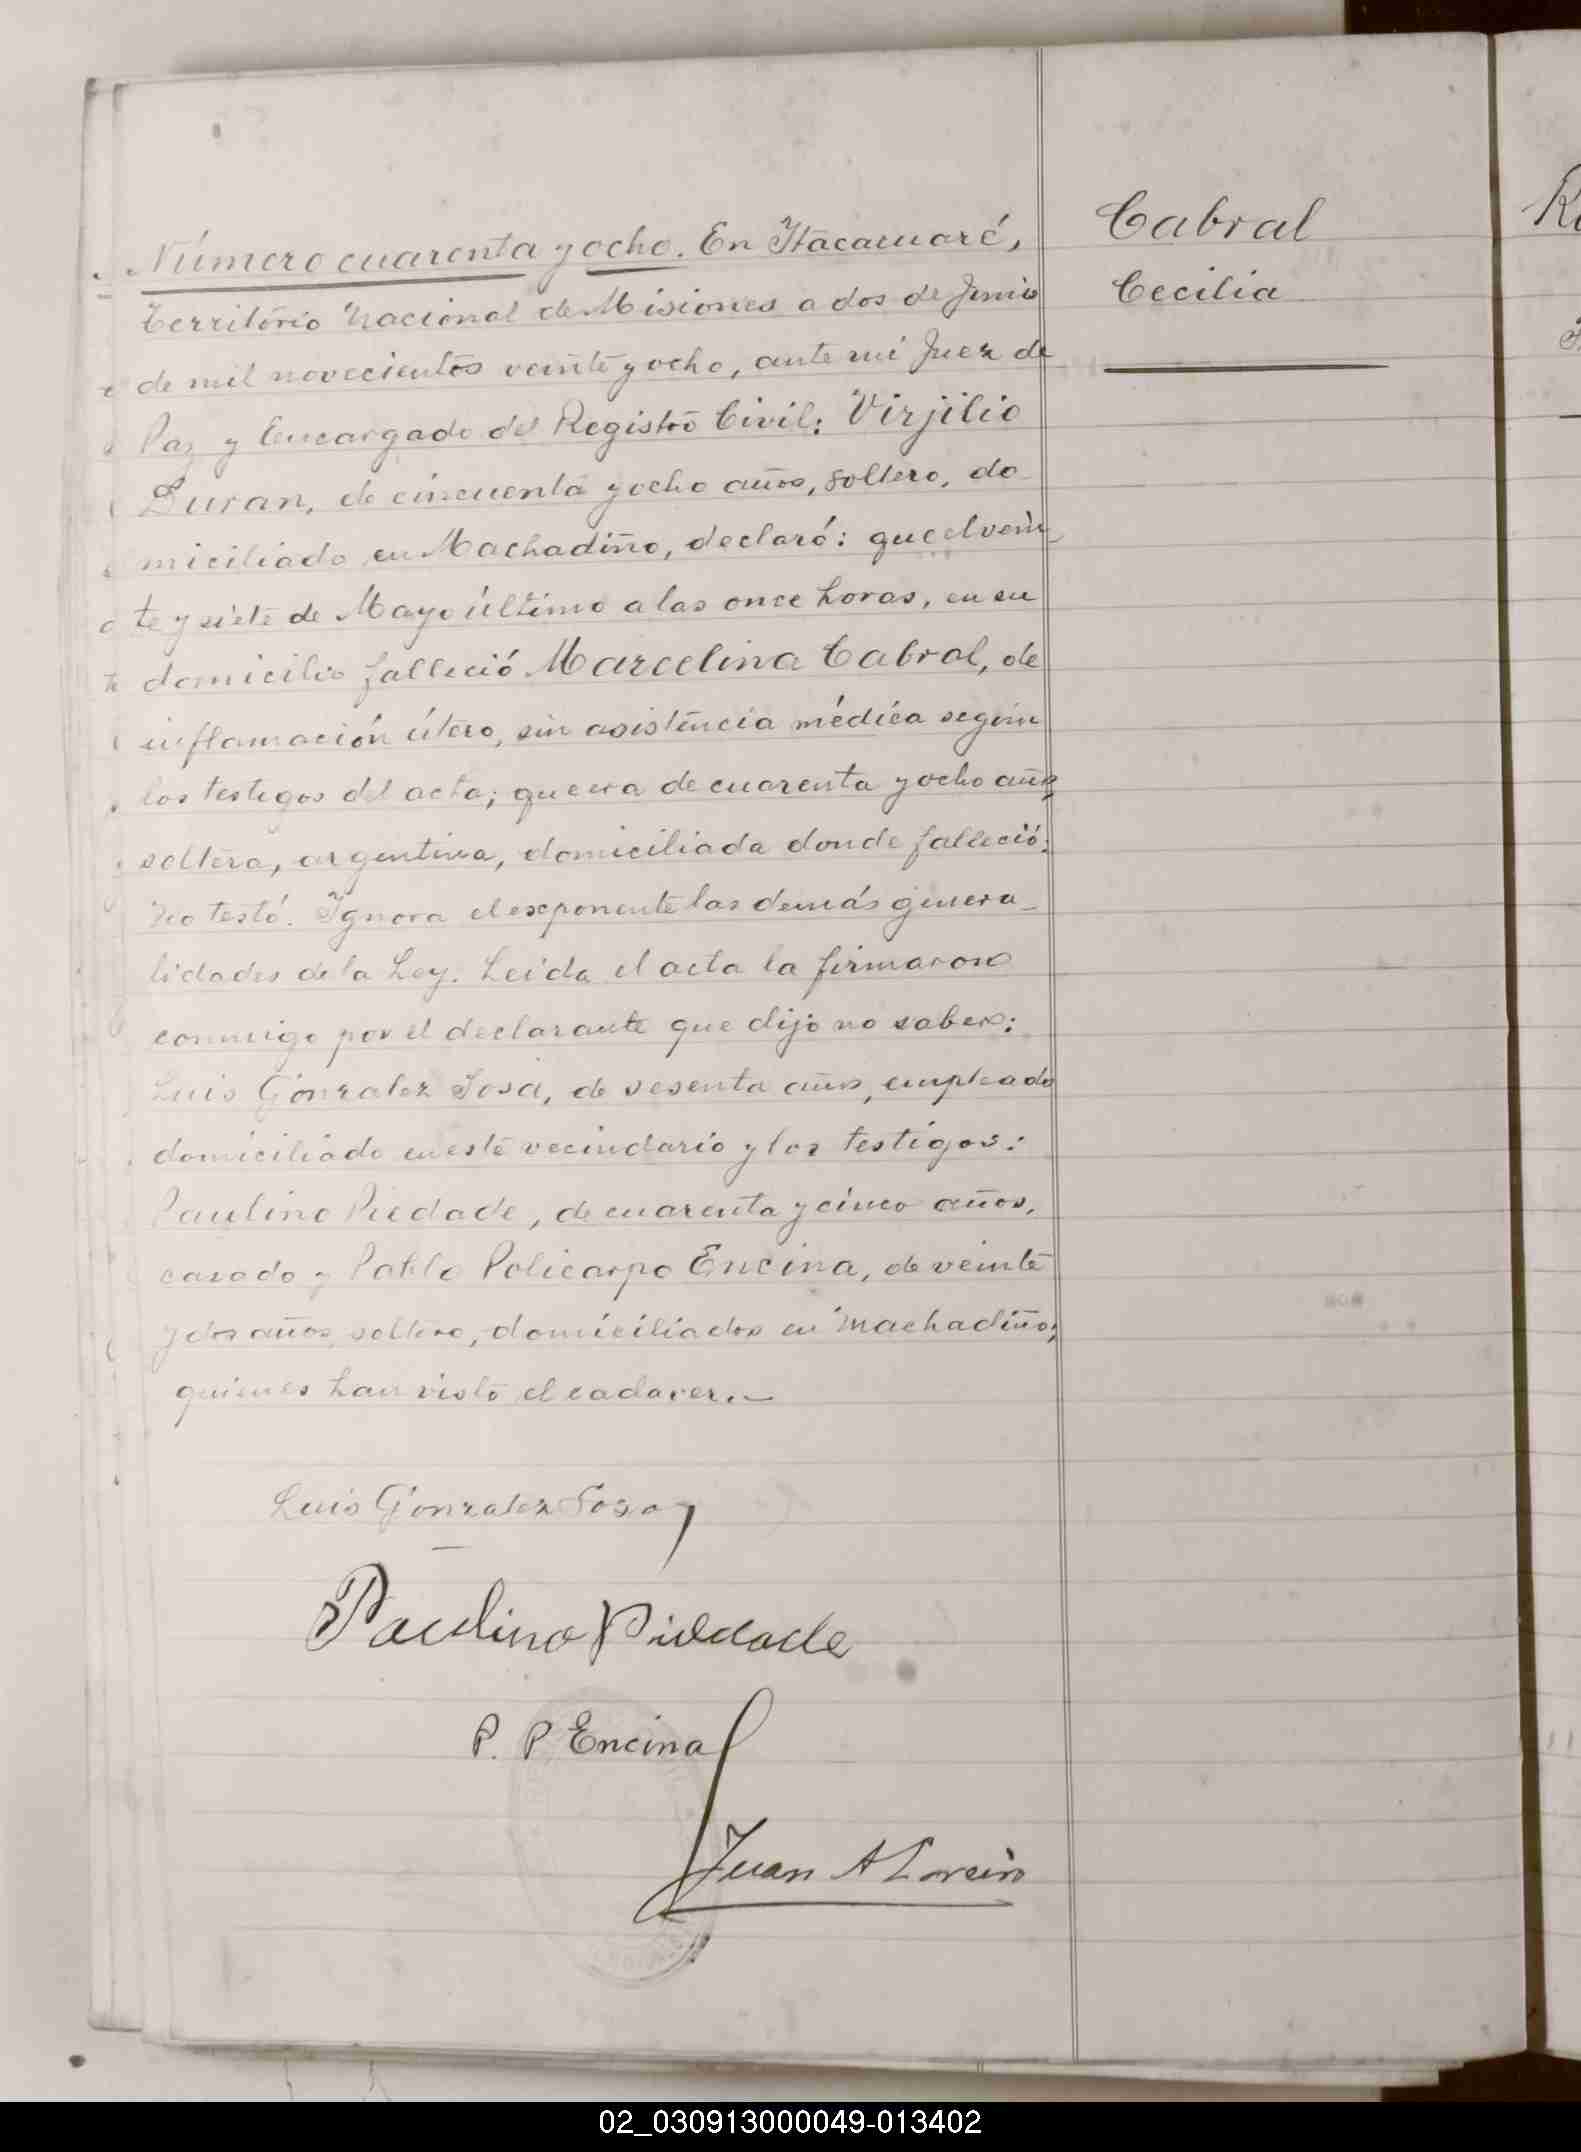 Número cuarenta y ocho. En Itacaruaré,
Território Nacional de Misiones a dos de Junio
de mil novecientos veinte y ocho, ante mi Juez de
Paz y Encargado del Registro Civil: Virjilio
Duran, de cincuenta y ocho años, soltero, do
miciliado en Machadiño, declaró: que el vein_
te y siete de Mayo último a las once horas, en su
domicilio falleció Marcelina Cabral, de
inflamación útero, sin asistencia médica según
los testigos del acta; que era de cuarenta y ocho años,
soltera, argentina, domiciliada donde falleció:
No testó. Ignora el exponente las demás genera_
lidades de la Ley. Leida el acta la firmaron
conmigo por el declarante que dijo no saber:
Luis Gonzalez Sosa, de sesenta años, empleado
domiciliado en este vecindario y los testigos:
Paulino Piedade, de cuarenta y cinco años,
casado y Pablo Policarpo Encina, de veinte
y dos años, soltero, domiciliados en Machadiño;
quienes han visto el cadaver._
Cabral
Cecilia
Luis Gonzalez Sosa
Paulino Piedade
P. P. Encina
Juan A
02_030913000049-013402